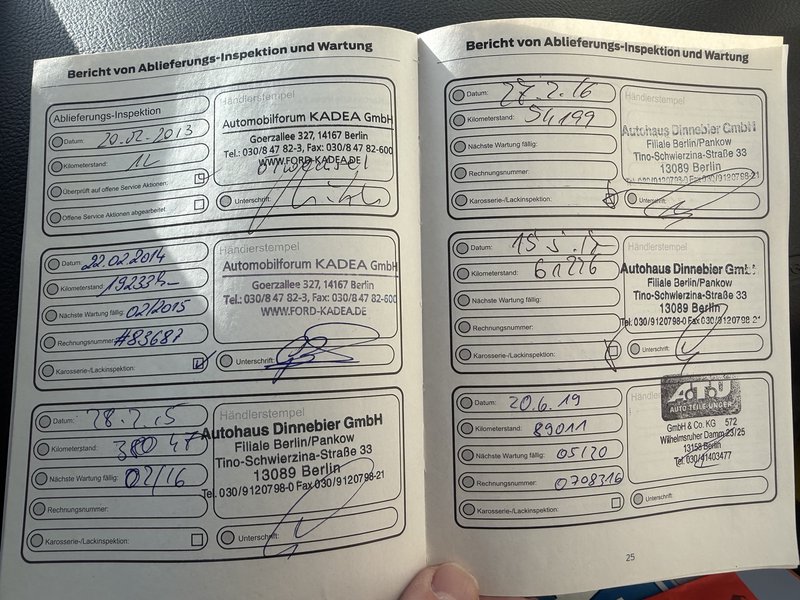 Bericht von Ablieferungs-Inspektion und Wartung
Ablieferungs-Inspektion
Datum: 20.02.2013
Kilometerstand: 12
Überprüft auf offene Service Aktionen:
Offene Service Aktionen abgearbeitet:
Händlerstempel
Automobilforum KADEA GmbH
Goerzallee 327, 14167 Berlin
Tel.: 030/8 47 82-3, Fax: 030/8 47 82-600
WWW.FORD-KADEA.DE
Unterschrift:
Datum: 22.02.2014
Kilometerstand: 19233
Nächste Wartung fällig: 02/2015
Rechnungsnummer: #83687
Karosserie-/Lackinspektion:
Händlerstempel
Automobilforum KADEA GmbH
Goerzallee 327, 14167 Berlin
Tel.: 030/8 47 82-3, Fax: 030/8 47 82-600
WWW.FORD-KADEA.DE
Unterschrift:
Datum: 28.2.15
Kilometerstand:
Nächste Wartung fällig: 02/16
Rechnungsnummer:
Karosserie-/Lackinspektion:
Händlerstempel
Autohaus Dinnebier GmbH
Filiale Berlin/Pankow
Tino-Schwierzina-Straße 33
13089 Berlin
Tel. 030/9120798-0 Fax 030/9120798-21
Unterschrift:
Bericht von Ablieferungs-Inspektion und Wartung
Datum: 27.2.16
Kilometerstand: 54199
Nächste Wartung fällig:
Rechnungsnummer:
Karosserie-/Lackinspektion:
Händlerstempel
Autohaus Dinnebier GmbH
Filiale Berlin/Pankow
Tino-Schwierzina-Straße 33
13089 Berlin
Tel. 030/9120798-0 Fax 030/9120798-21
Unterschrift:
Datum: 15.5.17
Kilometerstand: 61226
Nächste Wartung fällig:
Rechnungsnummer:
Karosserie-/Lackinspektion:
Händlerstempel
Autohaus Dinnebier GmbH
Filiale Berlin/Pankow
Tino-Schwierzina-Straße 33
13089 Berlin
Tel. 030/9120798-0 Fax 030/9120798-21
Unterschrift:
Datum: 20.6.19
Kilometerstand: 89011
Nächste Wartung fällig: 05/20
Rechnungsnummer: 0708316
Karosserie-/Lackinspektion:
AUTO TEILE UNGER
GmbH & Co. KG 572
Wilhelmsruher Damm 23/25
13158 Berlin
Tel. 030/41403477
Unterschrift:
25